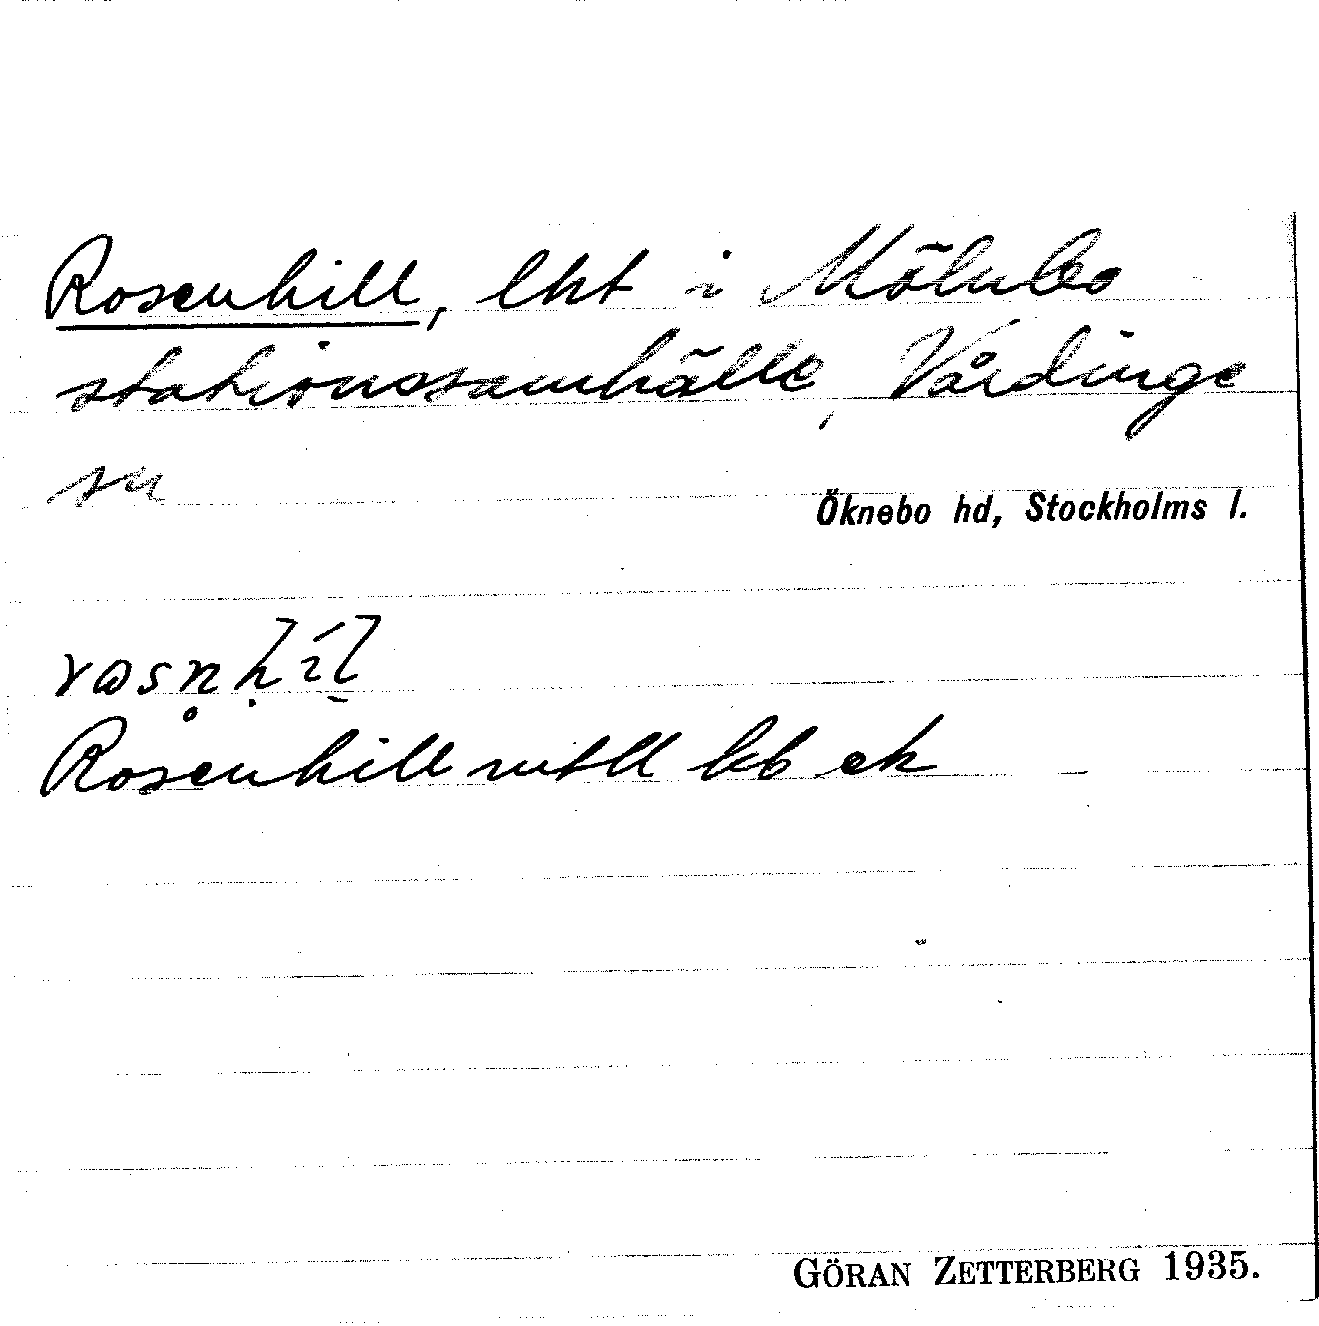 Rosenhill, lht i Mölnbo
stationssamhälle, Vårdinge
sn
Öknebo hd, Stockholms l.
Rosenhill mtll kb ek
GÖRAN ZETTERBERG 1935.